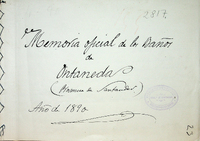 2817
Memoria oficial de los Baños
de
Ontaneda
(Provincia de Santander)
Año de 1890.
23